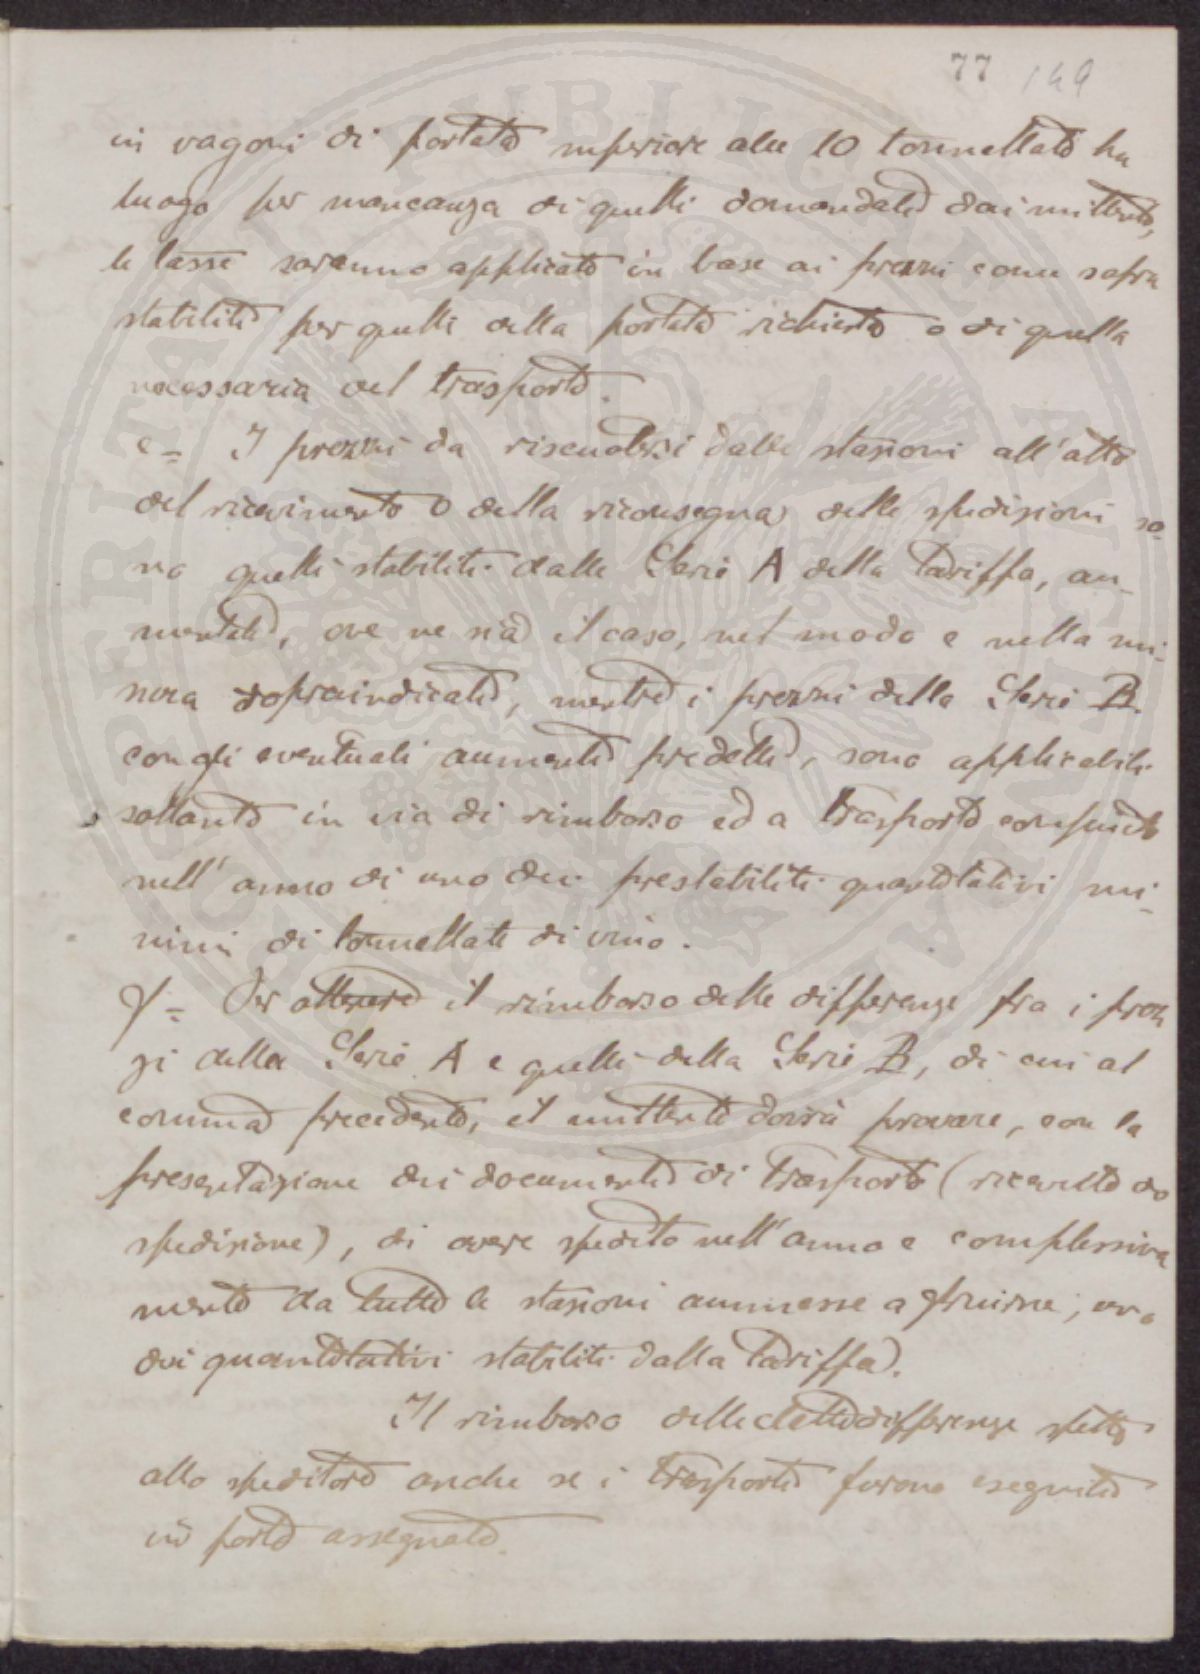 77 149
in vagoni di portata inferiore alle 10 tonnellate ha
luogo per mancanza di quelli domandati dai mittenti,
le tasse saranno applicate in base ai prezzi come sopra
stabiliti per quelli della portata richiesta o di quella
necessaria del trasporto.
e = I prezzi da riscuotersi dalle stazioni all'atto
del ricevimento o della riconsegna delle spedizioni so-
no quelli stabiliti dalle Serie A della Tariffa, au-
mentati, ove ne sia il caso, nel modo e nella mi-
sura sopraindicati, mentre i prezzi della Serie B.
con gli eventuali aumenti predetti, sono applicabili
soltanto in via di rimborso ed a trasporto compiuto
nell'anno di uno dei prestabiliti quantitativi mi-
nimi di tonnellate di vino.
f = Per ottenere il rimborso delle differenze fra i prez
zi della Serie A e quelli della Serie B, di cui al
comma precedente, il mittente dovrà provare, con la
presentazione dei documenti di trasporto (ricevute di
spedizione), di avere spedito nell'anno e complessiva
mente da tutte le stazioni ammesse a fruirne, uno
dei quantitativi stabiliti dalla Tariffa.
Il rimborso delle dette differenze spetta
allo speditore anche se i trasporti furono eseguiti
in porto assegnato.
PERITAT PVBLICAE AVGENDAE